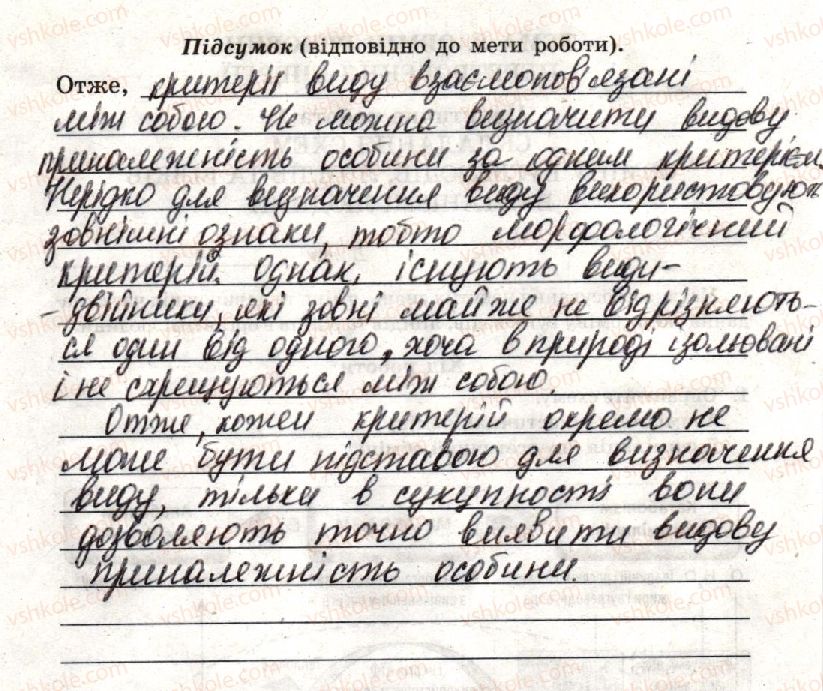 Підсумок (відповідно до мети роботи).
Отже, критерії виду взаємопов'язані
між собою. Не можна визначити видову
приналежність особини за одним критерієм.
Нерідко для визначення виду використовують
зовнішні ознаки, тобто морфологічний
критерій. Однак, існують види-
-двійники, які зовні майже не відрізняють-
ся один від одного, хоча в природі ізольовані
і не схрещуються між собою.
Отже, кожен критерій окремо не
може бути підставою для визначення
виду, тільки в сукупності вони
дозволяють точно виявити видову
приналежність особини.
vshkole.com